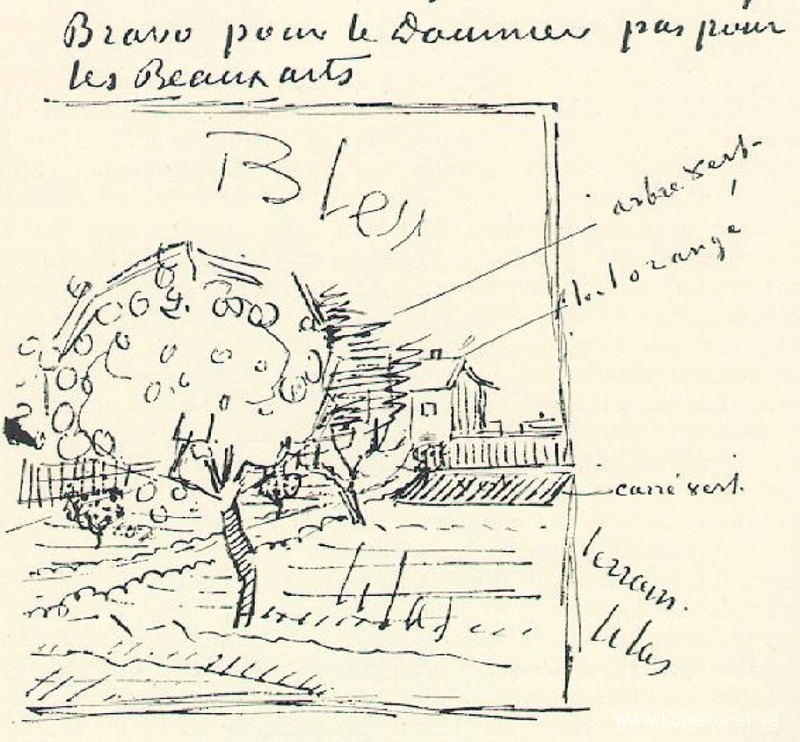 Bravo pour le Daumier pas pour
les Beaux arts
Bleu
arbre vert
toit orangé
carré vert.
terrain.
lilas
www.kopakonst.se